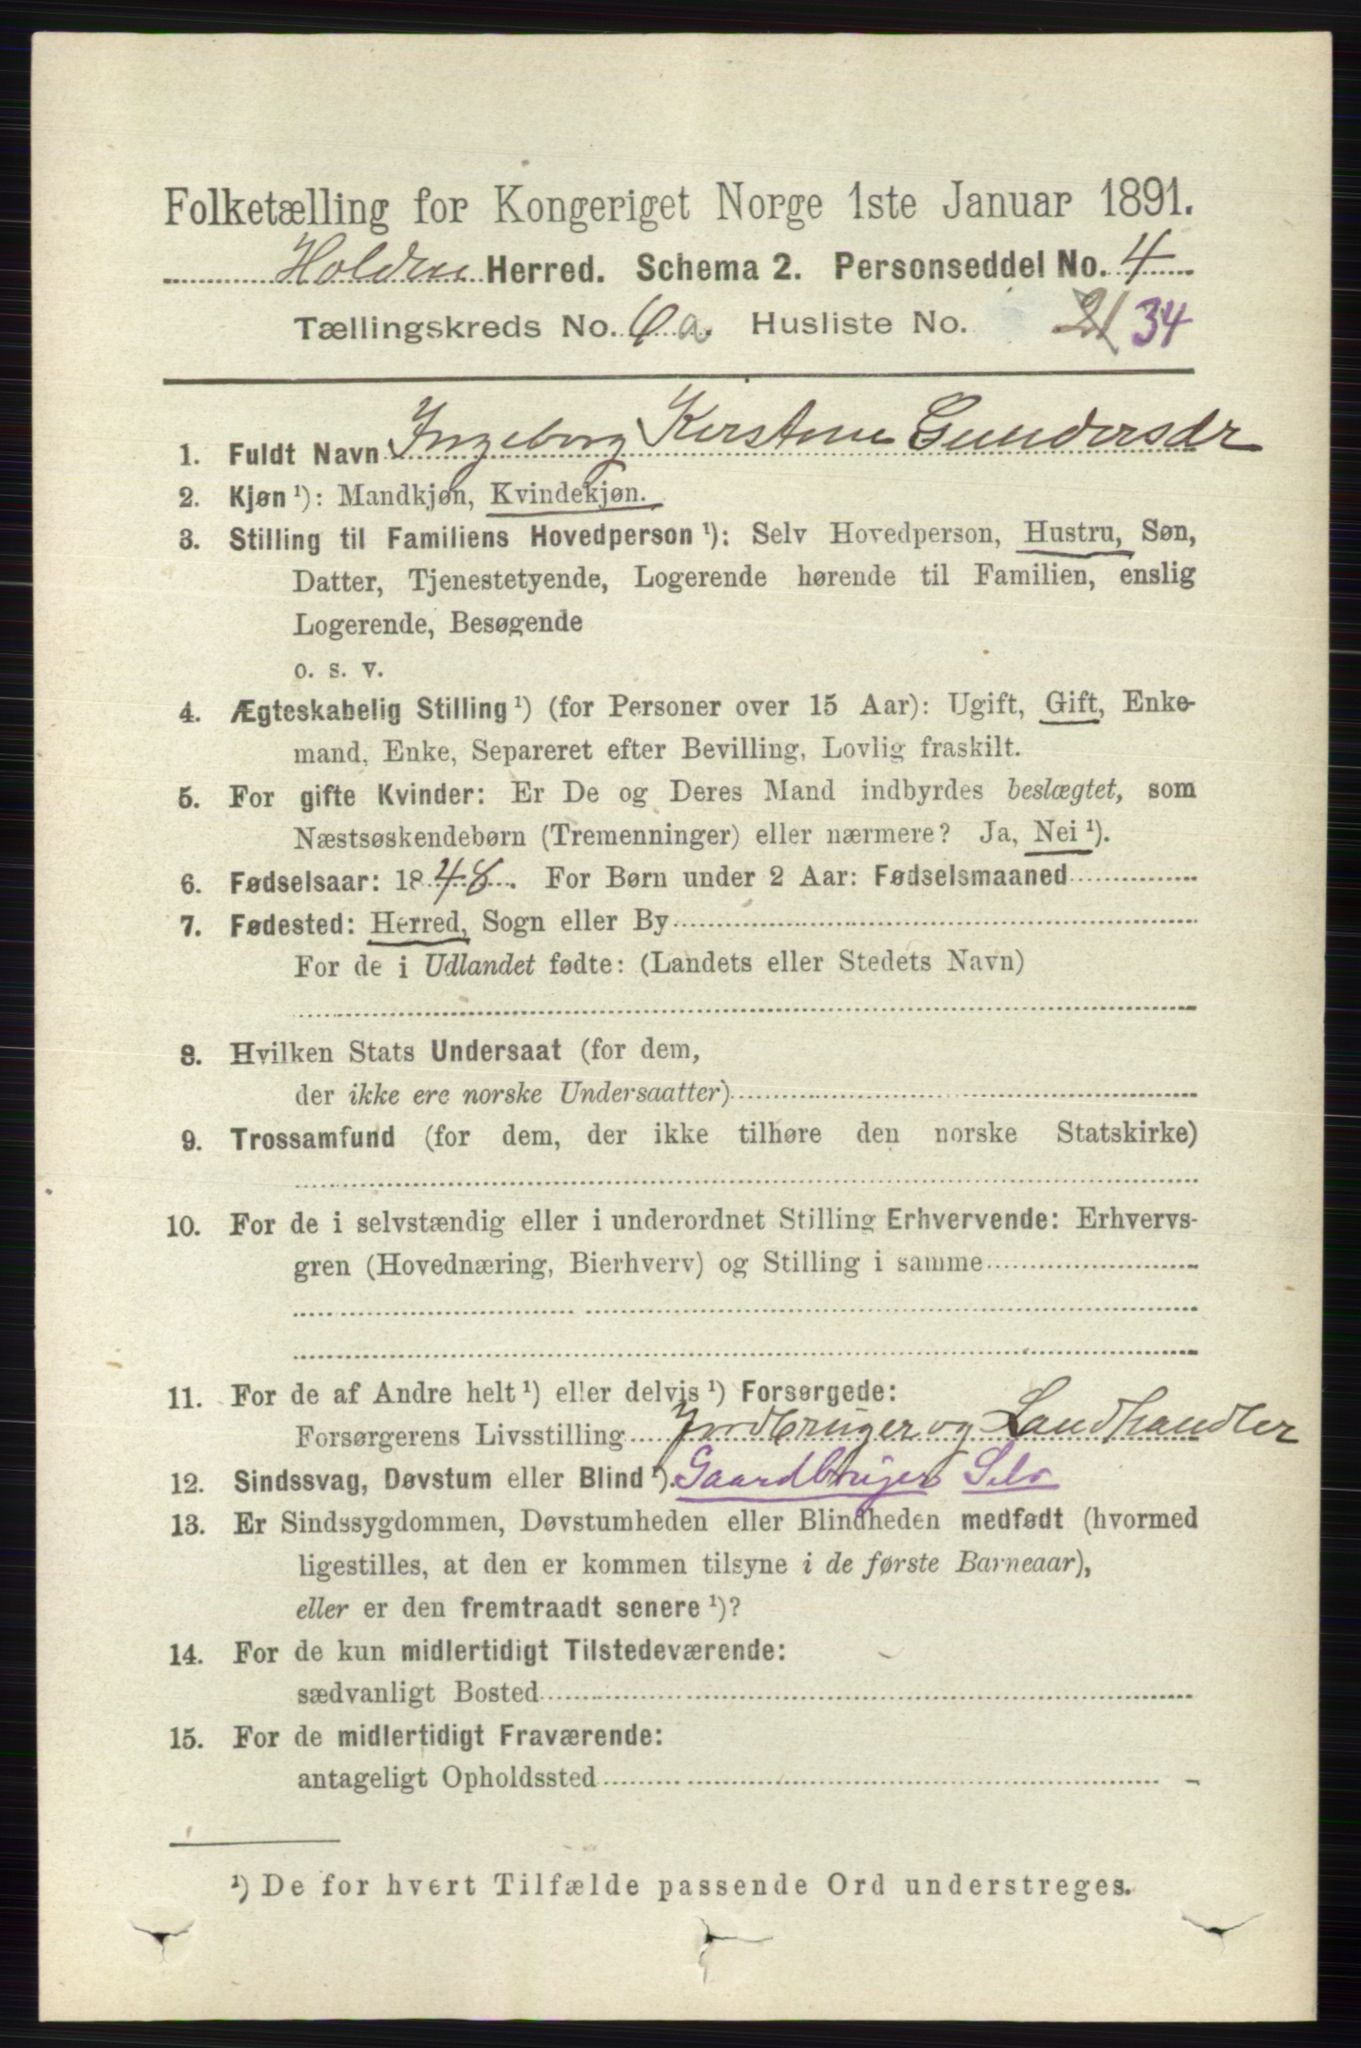 Folketælling for Kongeriget Norge 1ste Januar 1891.
Holden Herred. Schema 2. Personseddel No. 4
Tællingskreds No. 6 a. Husliste No. 21 34
1. Fuldt Navn Ingeborg Kirstine Gundersdr
2. Kjøn ¹): Mandkjøn, Kvindekjøn.
3. Stilling til Familiens Hovedperson ¹): Selv Hovedperson, Hustru, Søn,
Datter, Tjenestetyende, Logerende hørende til Familien, enslig
Logerende, Besøgende
o. s. v.
4. Ægteskabelig Stilling ¹) (for Personer over 15 Aar): Ugift, Gift, Enke-
mand, Enke, Separeret efter Bevilling, Lovlig fraskilt.
5. For gifte Kvinder: Er De og Deres Mand indbyrdes beslægtet, som
Næstsøskendebørn (Tremenninger) eller nærmere? Ja, Nei ¹).
6. Fødselsaar: 1848. For Børn under 2 Aar: Fødselsmaaned
7. Fødested: Herred, Sogn eller By
For de i Udlandet fødte: (Landets eller Stedets Navn)
8. Hvilken Stats Undersaat (for dem,
der ikke ere norske Undersaatter)
9. Trossamfund (for dem, der ikke tilhøre den norske Statskirke)
10. For de i selvstændig eller i underordnet Stilling Erhvervende: Erhvervs-
gren (Hovednæring, Bierhverv) og Stilling i samme
11. For de af Andre helt ¹) eller delvis ¹) Forsørgede:
Forsørgerens Livsstilling Jordbruger og Landhandler
12. Sindssvag, Døvstum eller Blind ¹). Gaardbruger Selv
13. Er Sindssygdommen, Døvstumheden eller Blindheden medfødt (hvormed
ligestilles, at den er kommen tilsyne i de første Barneaar),
eller er den fremtraadt senere ¹)?
14. For de kun midlertidigt Tilstedeværende:
sædvanligt Bosted
15. For de midlertidigt Fraværende:
antageligt Opholdssted
¹) De for hvert Tilfælde passende Ord understreges.